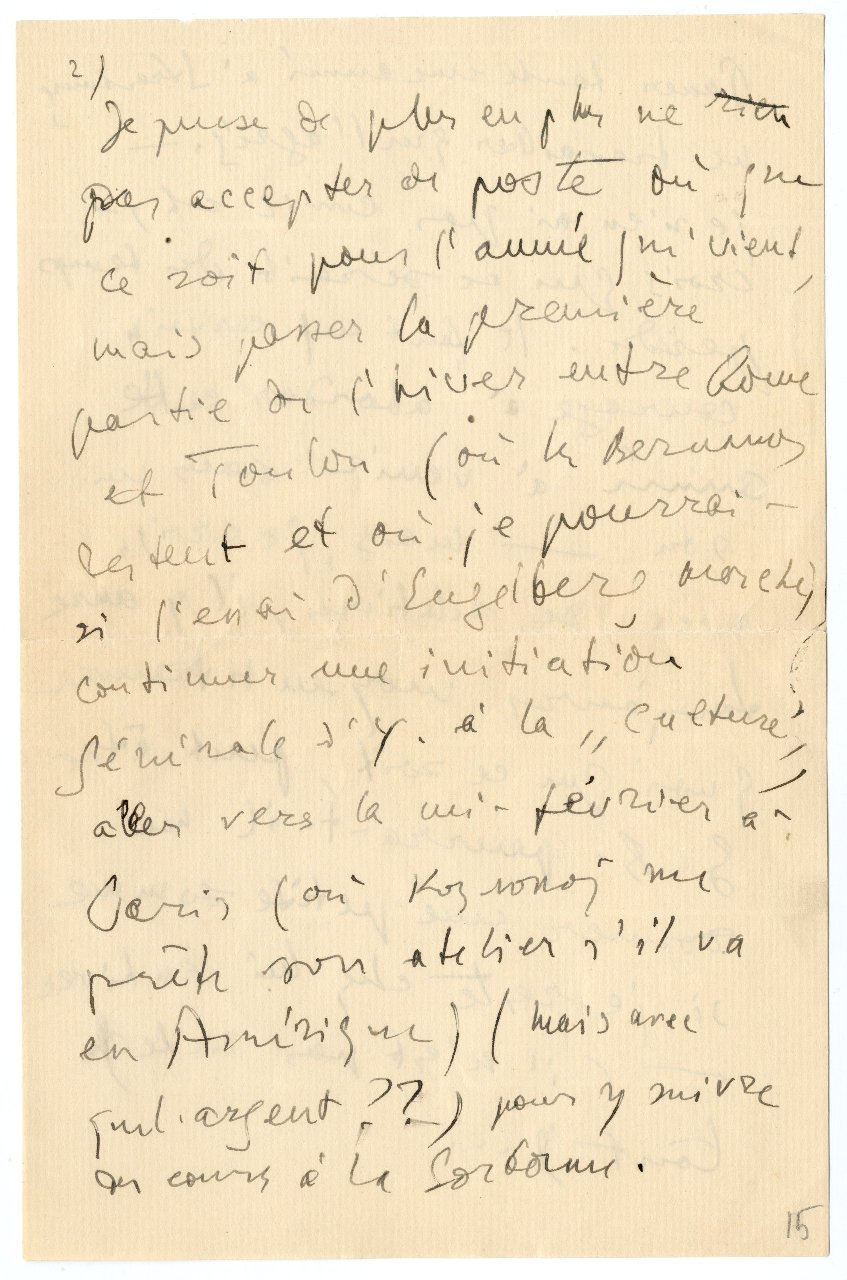 2)
Je pense de plus en plus ne rien
pas accepter de poste où que
ce soit pour l'année qui vient,
mais passer la première
partie de l'hiver entre Rome
et Toulon (où les Bernanos
restent et où je pourrai -
si l'essai d'Engelberg marche,
continuer une initiation
générale d'Y. à la „Culture”)
aller vers la mi-février à
Paris (où me
prête son atelier s'il va
en Amérique) (mais avec
quel argent ??) pour y suivre
des cours à la Sorbonne.
15